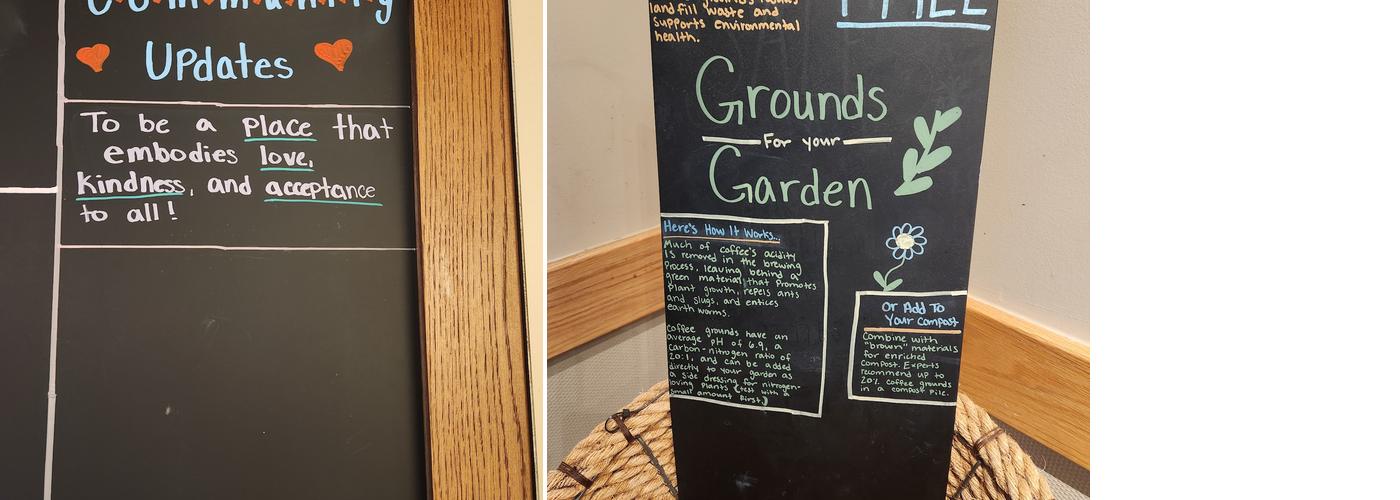 Community
Updates
To be a place that
embodies love,
kindness, and acceptance
to all!
landfill waste and
supports environmental
health.
FREE
Grounds
For your
Garden
Here's How It Works...
Much of coffee's acidity
is removed in the brewing
process, leaving behind a
green material that promotes
plant growth, repels ants
and slugs, and entices
earth worms.
Coffee grounds have an
average pH of 6.9, a
carbon-nitrogen ratio of
20:1, and can be added
directly to your garden as
a side dressing for nitrogen-
loving plants (test with a
small amount first.)
Or Add To
Your Compost
Combine with
"brown" materials
for enriched
compost. Experts
recommend up to
20% coffee grounds
in a compost pile.